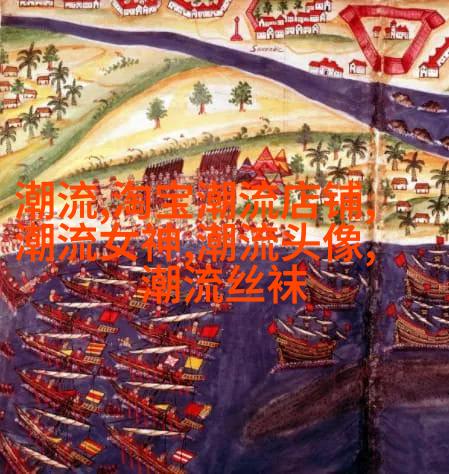 潮流,淘宝潮流店铺,
潮流女神,潮流头像,
潮流丝袜